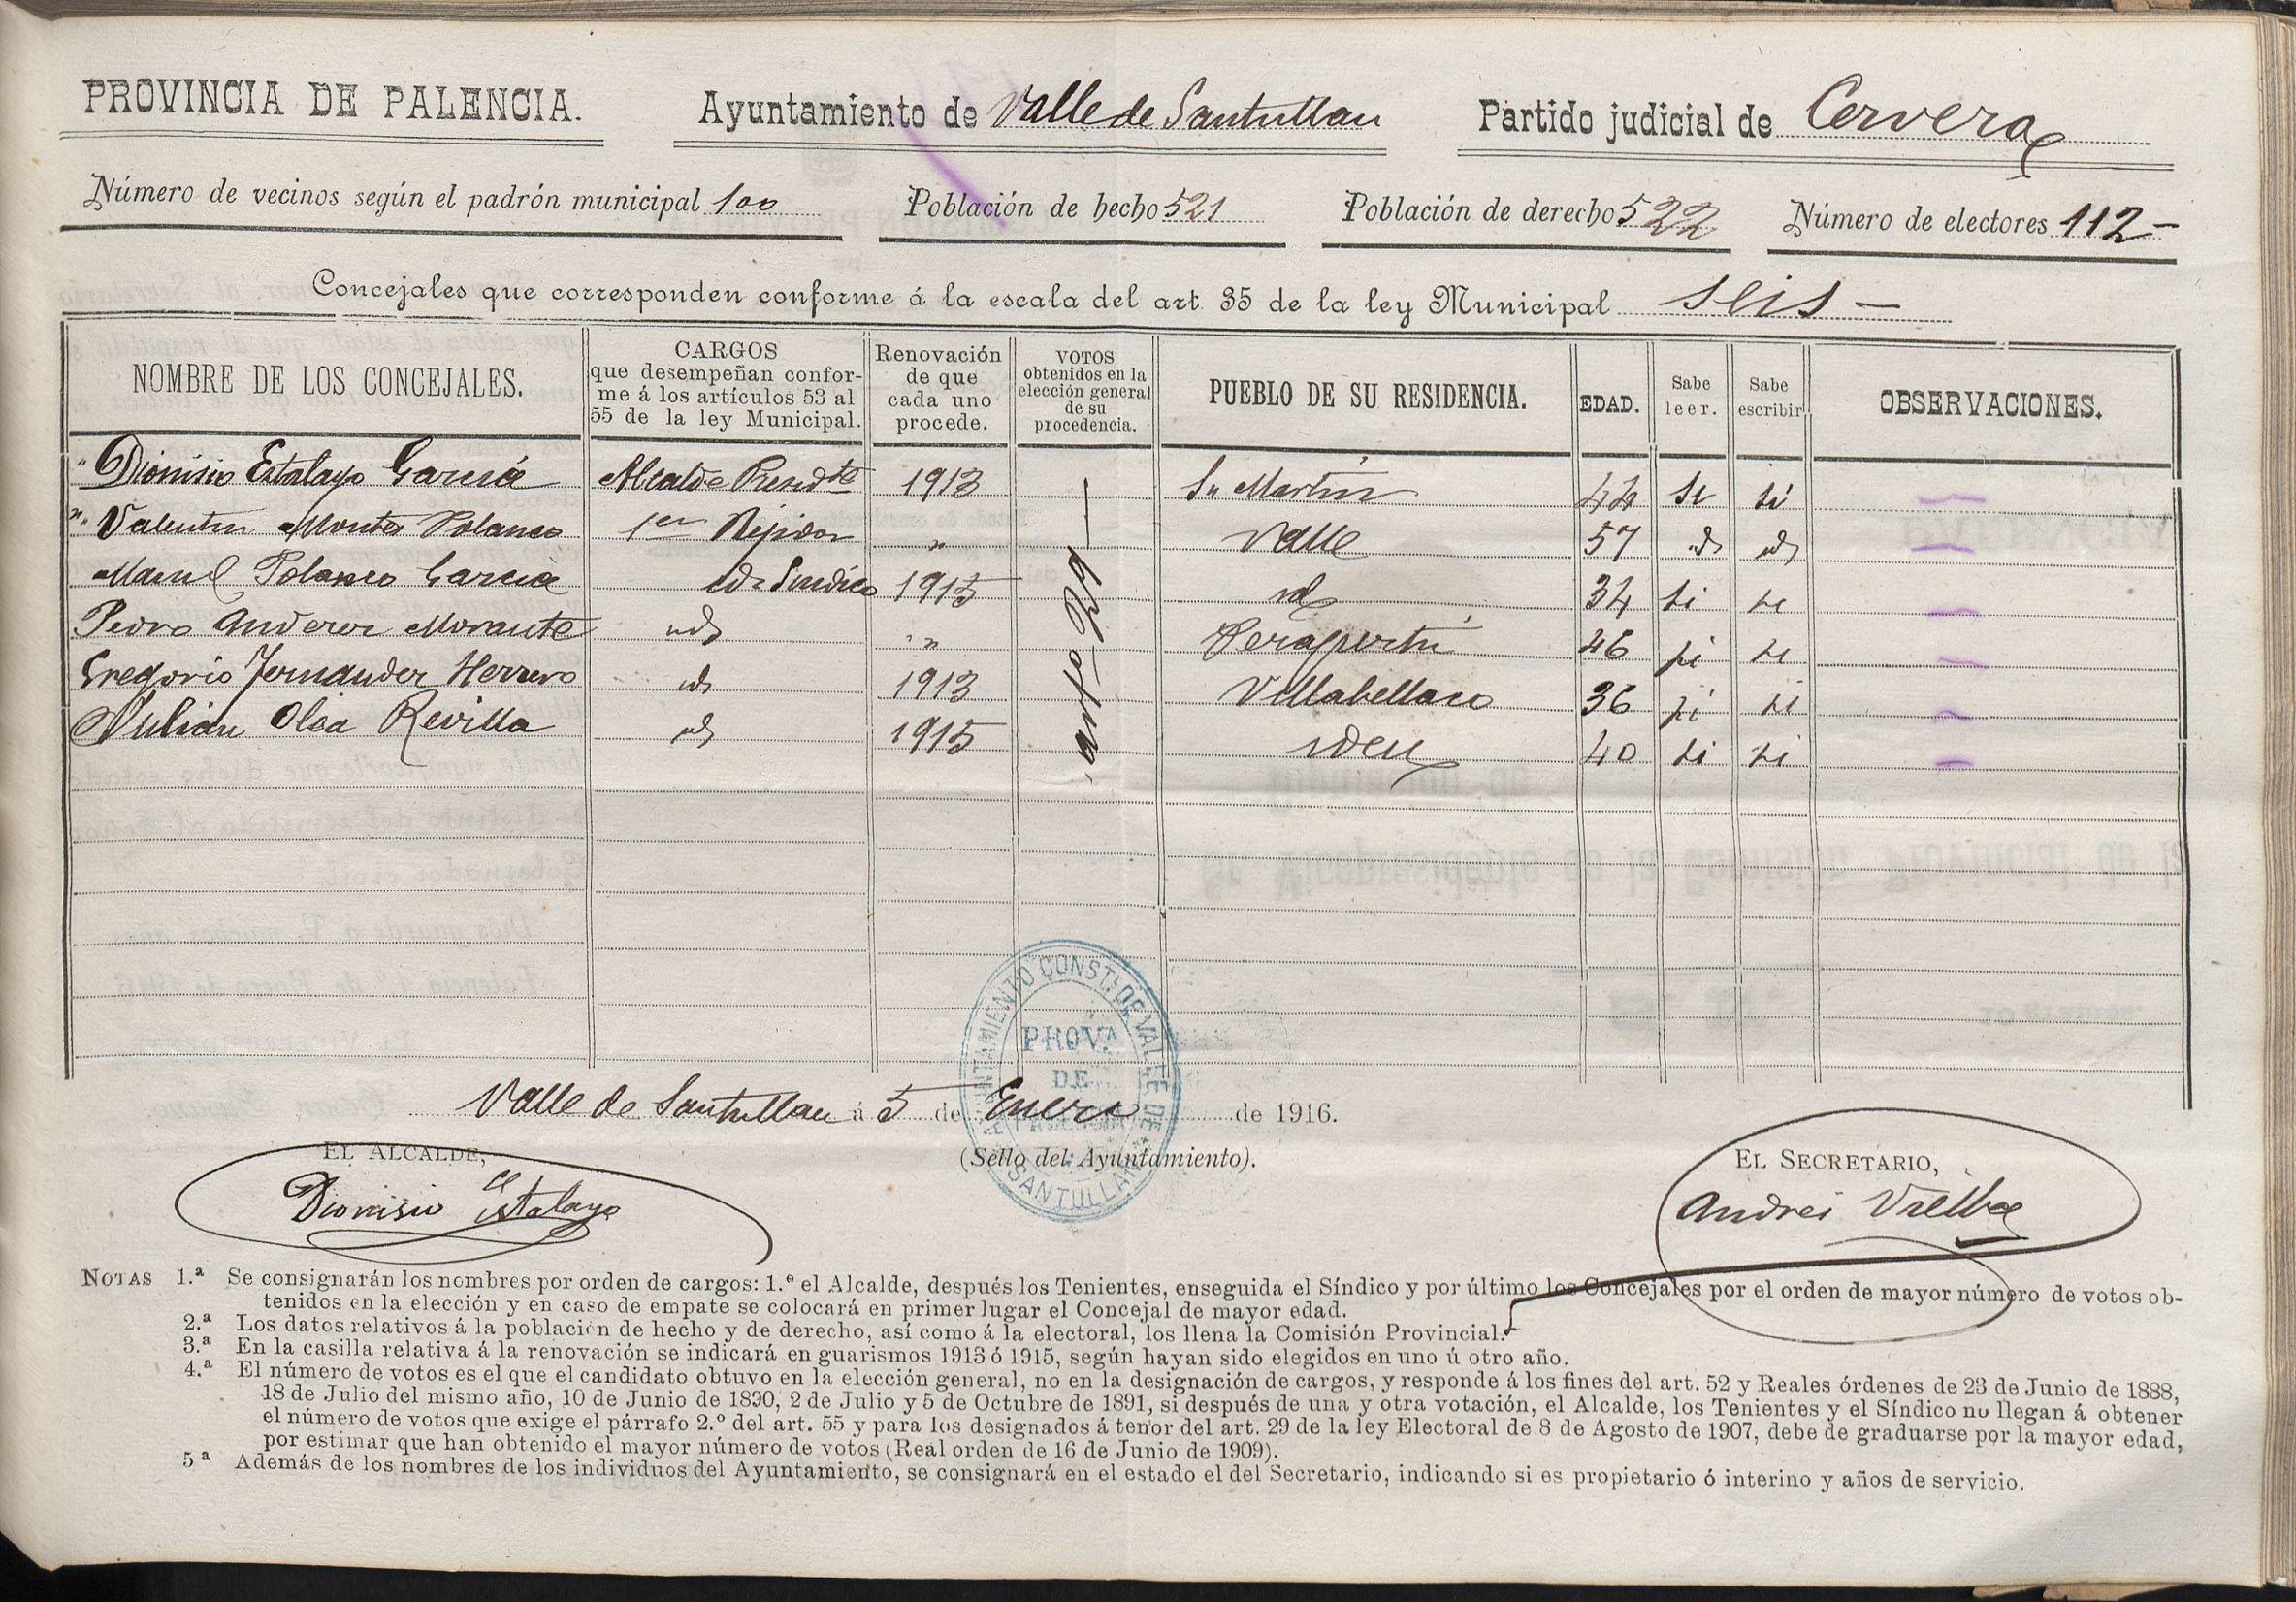 PROVINCIA DE PALENCIA. Ayuntamiento de Valle de Santullan Partido judicial de Cervera
Número de vecinos según el padrón municipal 100 Población de hecho 521 Población de derecho 522 Número de electores 112
Concejales que corresponden conforme á la escala del art. 35 de la ley Municipal seis
NOMBRE DE LOS CONCEJALES. CARGOS que desempeñan confor- me á los artículos 53 al 55 de la ley Municipal. Renovación de que cada uno procede. VOTOS obtenidos en la elección general de su procedencia. PUEBLO DE SU RESIDENCIA. EDAD. Sabe leer. Sabe escribir OBSERVACIONES.
Dionisio Estalayo García Alcalde Presidte 1913 Sn Martin 44 si si
Valentin Montes Polanco 1er Rejidor " Valle 57 id id
Manuel Polanco Garcia id Sindico 1915 id 34 si si
Pedro Anderez Morante id " Perapertú 46 si si
Gregorio Fernandez Herrero id 1913 Villabellaco 36 si si
Julian Olea Revilla id 1915 idem 40 si si
arto 29
Valle de Santullan á 5 de Enero de 1916.
AYUNTAMIENTO CONSTL. DE VALLE DE SANTULLAN
PROVA
DE
EL ALCALDE, (Sello del Ayuntamiento). EL SECRETARIO,
Dionisio Estalayo Andrés Vielba
NOTAS 1.ª Se consignarán los nombres por orden de cargos: 1.º el Alcalde, después los Tenientes, enseguida el Síndico y por último los Concejales por el orden de mayor número de votos ob-
tenidos en la elección y en caso de empate se colocará en primer lugar el Concejal de mayor edad.
2.ª Los datos relativos á la población de hecho y de derecho, así como á la electoral, los llena la Comisión Provincial.
3.ª En la casilla relativa á la renovación se indicará en guarismos 1913 ó 1915, según hayan sido elegidos en uno ú otro año.
4.ª El número de votos es el que el candidato obtuvo en la elección general, no en la designación de cargos, y responde á los fines del art. 52 y Reales órdenes de 23 de Junio de 1888,
18 de Julio del mismo año, 10 de Junio de 1890, 2 de Julio y 5 de Octubre de 1891, si después de una y otra votación, el Alcalde, los Tenientes y el Síndico no llegan á obtener
el número de votos que exige el párrafo 2.º del art. 55 y para los designados á tenor del art. 29 de la ley Electoral de 8 de Agosto de 1907, debe de graduarse por la mayor edad,
por estimar que han obtenido el mayor número de votos (Real orden de 16 de Junio de 1909).
5ª Además de los nombres de los individuos del Ayuntamiento, se consignará en el estado el del Secretario, indicando si es propietario ó interino y años de servicio.